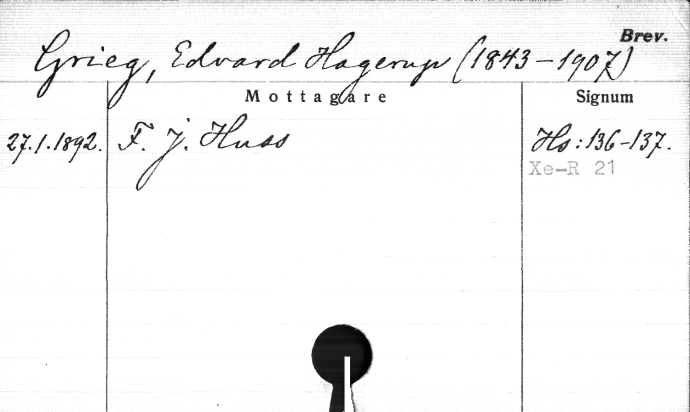 Brev.
Grieg, Edvard Hagerup (1843-1907)
Mottagare Signum
27.1.1892. F. J. Huss Hs: 136-137.
Xe-R 21